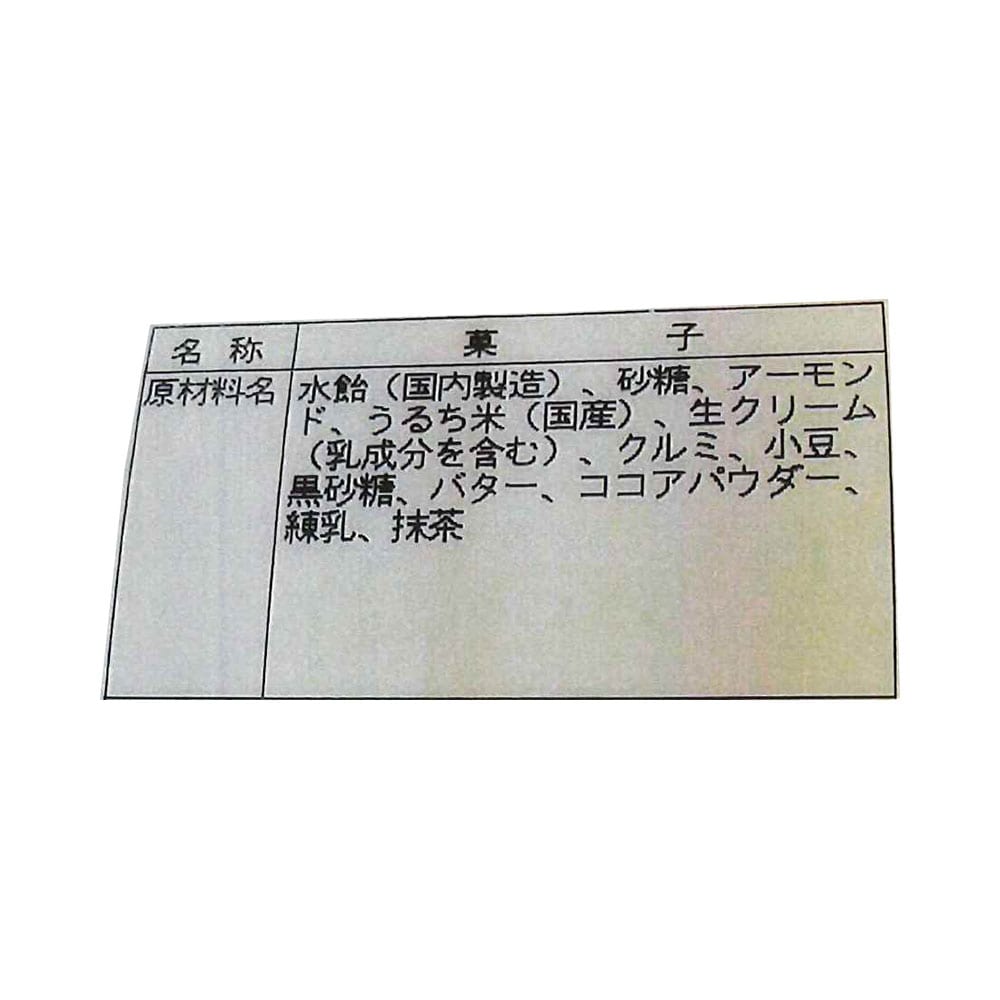 名称 菓子
原材料名 水飴（国内製造）、砂糖、アーモン
ド、うるち米（国産）、生クリーム
（乳成分を含む）、クルミ、小豆、
黒砂糖、バター、ココアパウダー、
練乳、抹茶